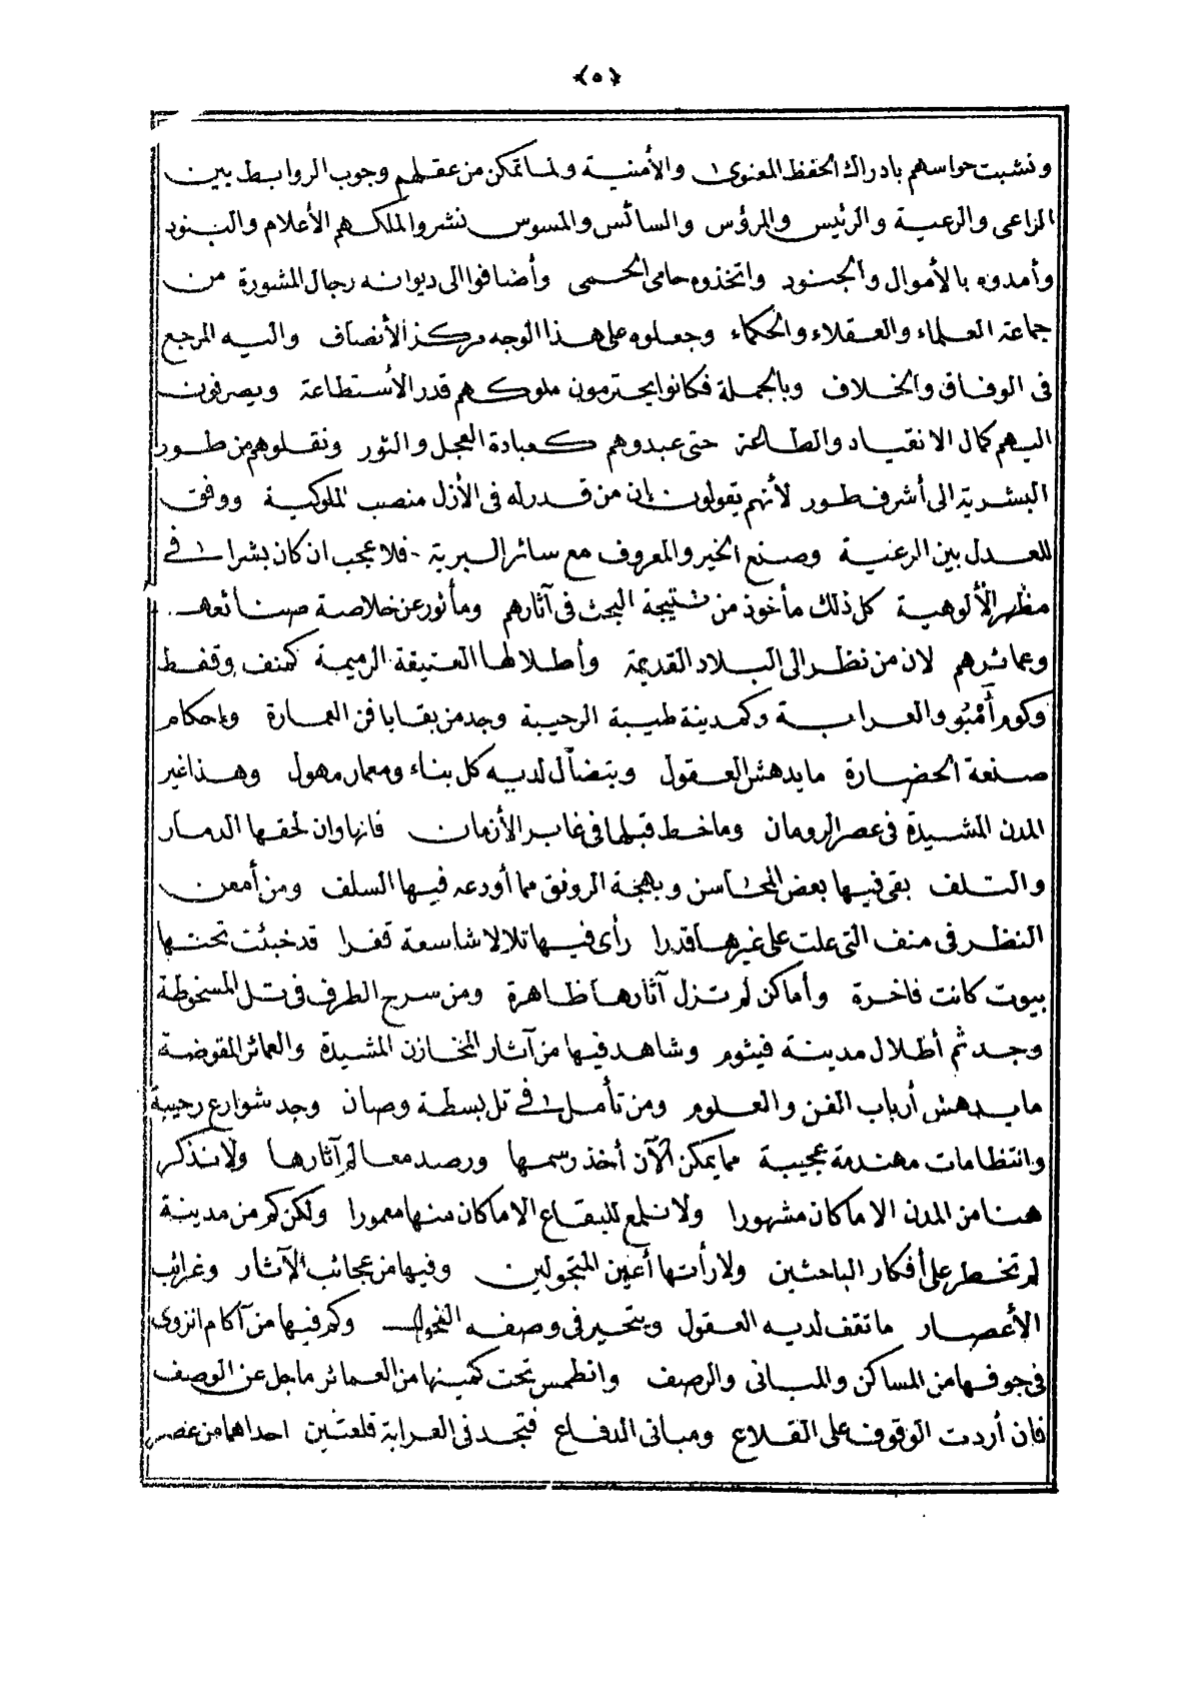 ﴿٥﴾
ونشبت حواسهم بادراك الحفظ المعنوى والأمنية ولما تمكن من عقلهم وجوب الروابط بين
الراعى والرعية والرئيس والمرؤس والسائس والمسوس نشروا لملكهم الأعلام والبنود
وأمدوه بالأموال والجنود واتخذوه حامى الحمى وأضافوا الى ديوانه رجال المشورة من
جماعة العلماء والعقلاء والحكماء وجعلوه على هذا الوجه مركز الأنصاف واليه المرجع
فى الوفاق والخلاف وبالجملة فكانوا يحترمون ملوكهم قدر الأستطاعة ويصرفون
اليهم كمال الانقياد والطاعة حتى عبدوهم كعبادة العجل والثور ونقلوهم من طور
البشرية الى أشرف طور لأنهم يقولون إن من قدر له فى الأزل منصب الملوكية ووفق
للعدل بين الرعية وصنع الخير والمعروف مع سائر البرية - فلا عجب ان كان بشرا فى
مظهر الألوهية كل ذلك مأخوذ من نتيجة البحث فى آثارهم ومأثور عن خلاصة صنائعهم
وعمائرهم لان من نظر الى البلاد القديمة وأطلالها العتيقة الرميمة كمنف وقفط
وكوم أمبو والعرابة وكمدينة طيبة الرحيبة وجد من بقايا فن العمارة وإحكام
صنعة الحضارة ما يدهش العقول ويتضأل لديه كل بناء ومعمار مهول وهذا غير
المدن المشيدة فى عصر الرومان وما خط قبلها فى غابر الأزمان فانها وان لحقها الدمار
والتلف بقى فيها بعض المحاسن وبهجة الرونق مما أودعه فيها السلف ومن أمعن
النظر فى منف التى علت على غيرها قدرا رأى فيها تلالا شاسعة قفرا قد خبئت تحتها
بيوت كانت فاخرة وأماكن لم تزل آثارها ظاهرة ومن سرح الطرف فى تل المسخوطة
وجد ثم أطلال مدينة فيثوم وشاهد فيها من آثار المخازن المشيدة والعمائر المقوضة
ما يدهش أرباب الفن والعلوم ومن تأمل فى تل بسطة وصان وجد شوارع رحيبة
وانتظامات مهندمة عجيبة مما يمكن الآن أخذ رسمها ورصد معالم آثارها ولا نذكر
هنا من المدن الا ما كان مشهورا ولا نلمع للبقاع الا ما كان منها معمورا ولكن كم من مدينة
لم تخطر على أفكار الباحثين ولا رأتها أعين المتجولين وفيها من عجائب الآثار وغرائب
الأعصار ما تقف لديه العقول ويتحير فى وصفه الفحول وكم فيها من آكام انزوى
فى جوفها من المساكن والمبانى والرصف وانطمس تحت كمينها من العمائر ما جل عن الوصف
فان أردت الوقوف على القلاع ومبانى الدفاع فتجد فى العرابة قلعتين احداهما من عصر